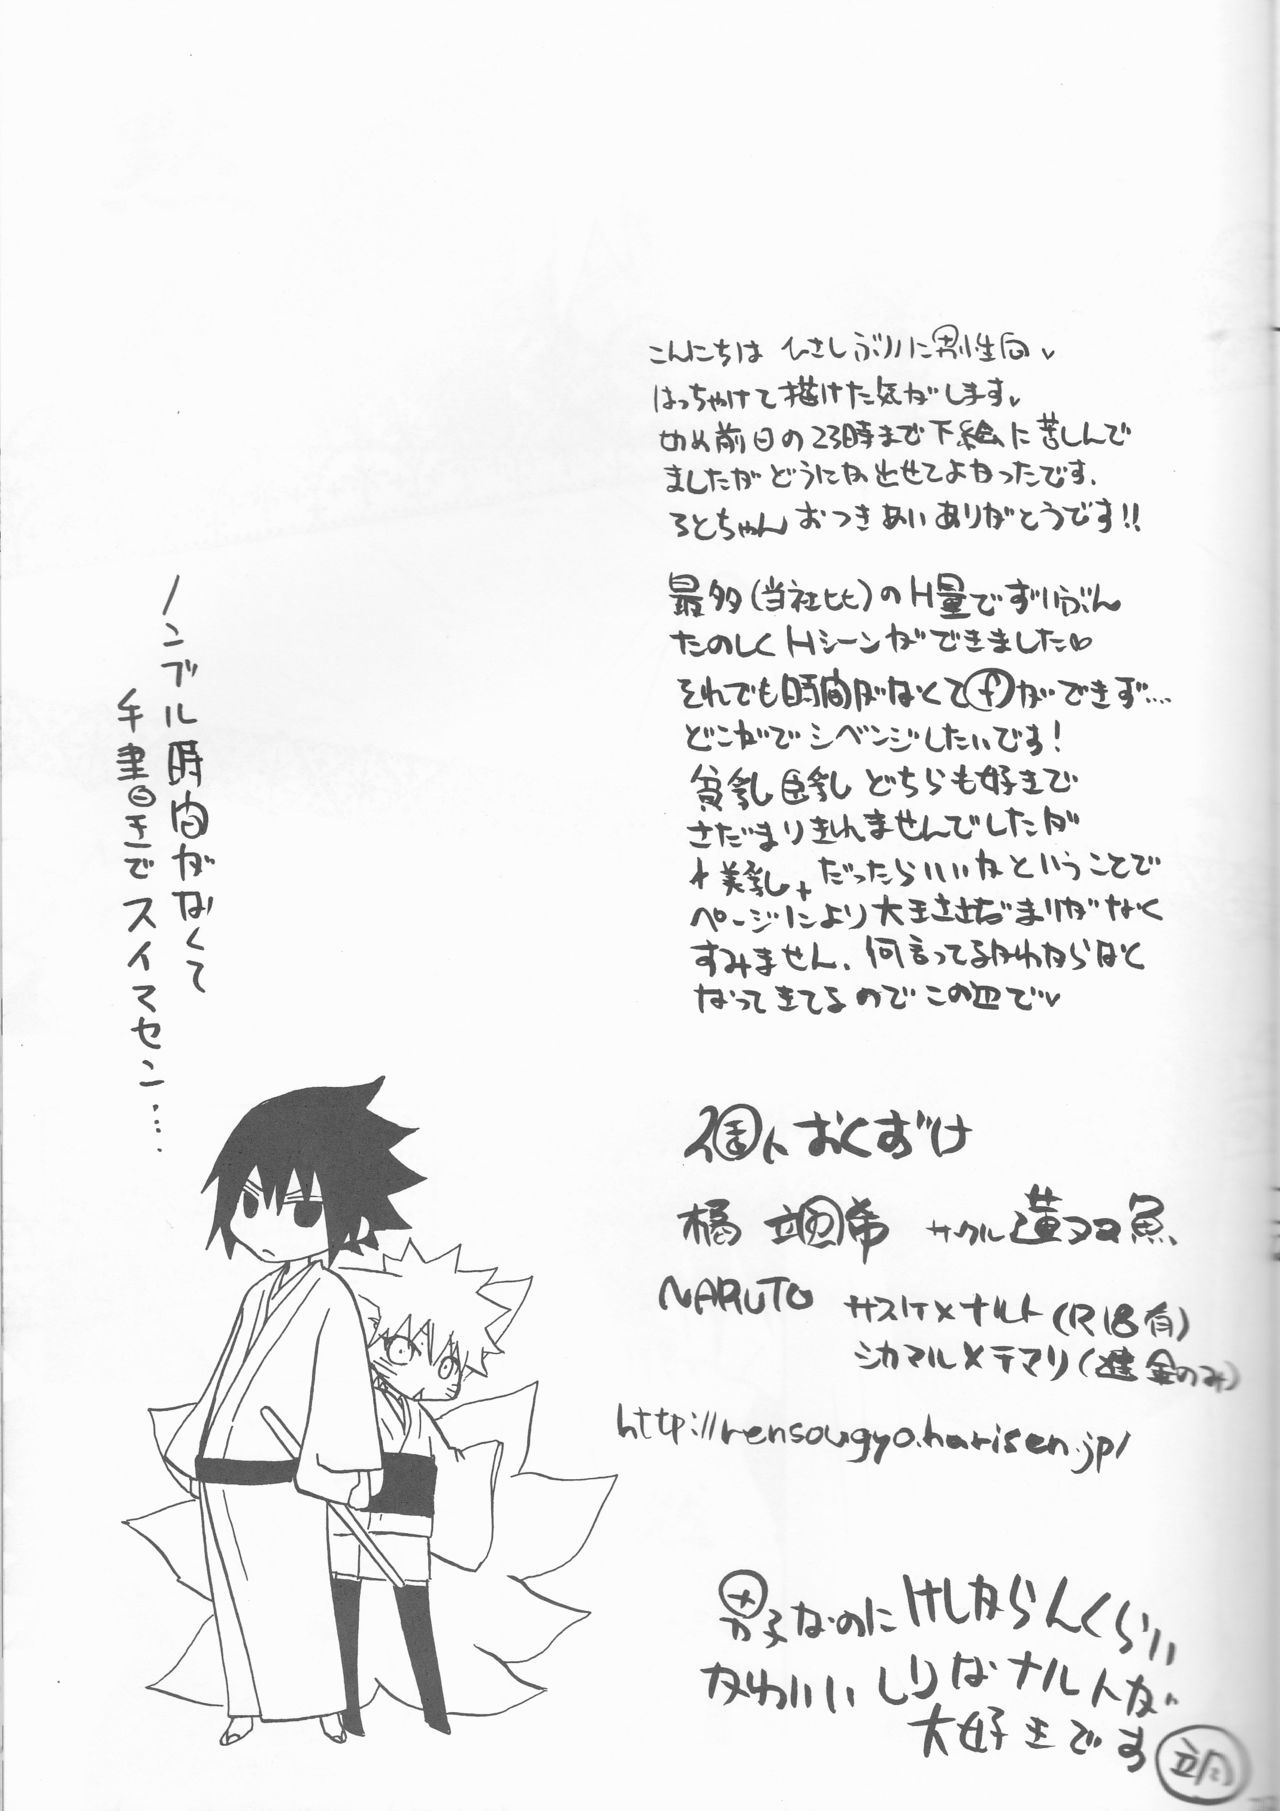 こんにちは ひさしぶりに男性向♥
はっちゃけて描けた気がします♥
〆前日の23時まで下絵に苦しんで
ましたがどうにか出せてよかったです.
ろとちゃん おつきあいありがとうです!!
最多(当社比)のH量でずいぶん
たのしくHシーンができました♡
それでも時間がなくて ができず…
どこかでリベンジしたいです!
貧乳 巨乳 どちらも好きで
さだまりきれませんでしたが
美乳 だったらいいねということで
ページにより大きささだまりがなく
すみません. 何言ってるかわからなく
なってきてるのでこの辺で♥
個人おくづけ
橘 希 サークル蓮双魚
NARUTO サスケ×ナルト(R18有)
シカマル×テマリ(健全のみ)
http://rensougyo.harisen.jp/
男子なのにけしからんくらい
かわいいしりなナルトが
大好きです
ノンブル時間がなくて
手書きでスイマセン…